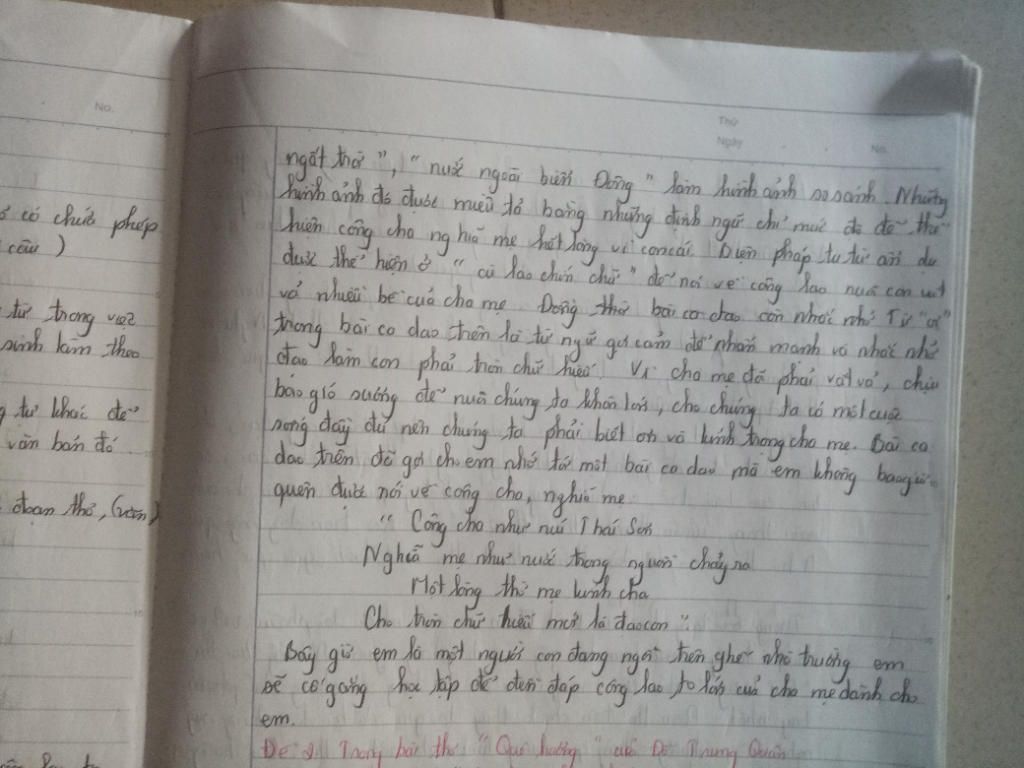 No.
ố có chứa phép
câu)
từ trong việc
sinh làm theo
g tự khác để
văn bản đó
đoạn thơ, (văn)
Thứ
Ngày
No.
ngất trờ", "nước ngoài biển Đông" làm hình ảnh so sánh. Những
hình ảnh đó được miêu tả bằng những định ngữ chỉ mức độ để thể
hiện công cha nghĩa mẹ hết lòng vì con cái. Biện pháp tu từ ẩn dụ
được thể hiện ở "cù lao chín chữ" để nói về công lao nuôi con vất
vả nhiều bề của cha mẹ. Đồng thời bài ca dao còn nhắc nhở Từ "ơi"
trong bài ca dao trên là từ ngữ gợi cảm để nhấn mạnh và nhắc nhở
đạo làm con phải tròn chữ hiếu. Vì cha mẹ đã phải vất vả, chịu
bao gió sương để nuôi chúng ta khôn lớn, cho chúng ta có một cuộc
sống đầy đủ nên chúng ta phải biết ơn và kính trọng cha mẹ. Bài ca
dao trên đã gợi cho em nhớ tới một bài ca dao mà em không bao giờ
quên được nói về công cha, nghĩa mẹ
"Công cha như núi Thái Sơn
Nghĩa mẹ như nước trong nguồn chảy ra
Một lòng thờ mẹ kính cha
Cho tròn chữ hiếu mới là đạo con".
Bây giờ em là một người con đang ngồi trên ghế nhà trường em
sẽ cố gắng học tập để đền đáp công lao to lớn của cha mẹ dành cho
em.
Đề 2 Trong bài thơ "Quê hương" của Đỗ Trung Quân